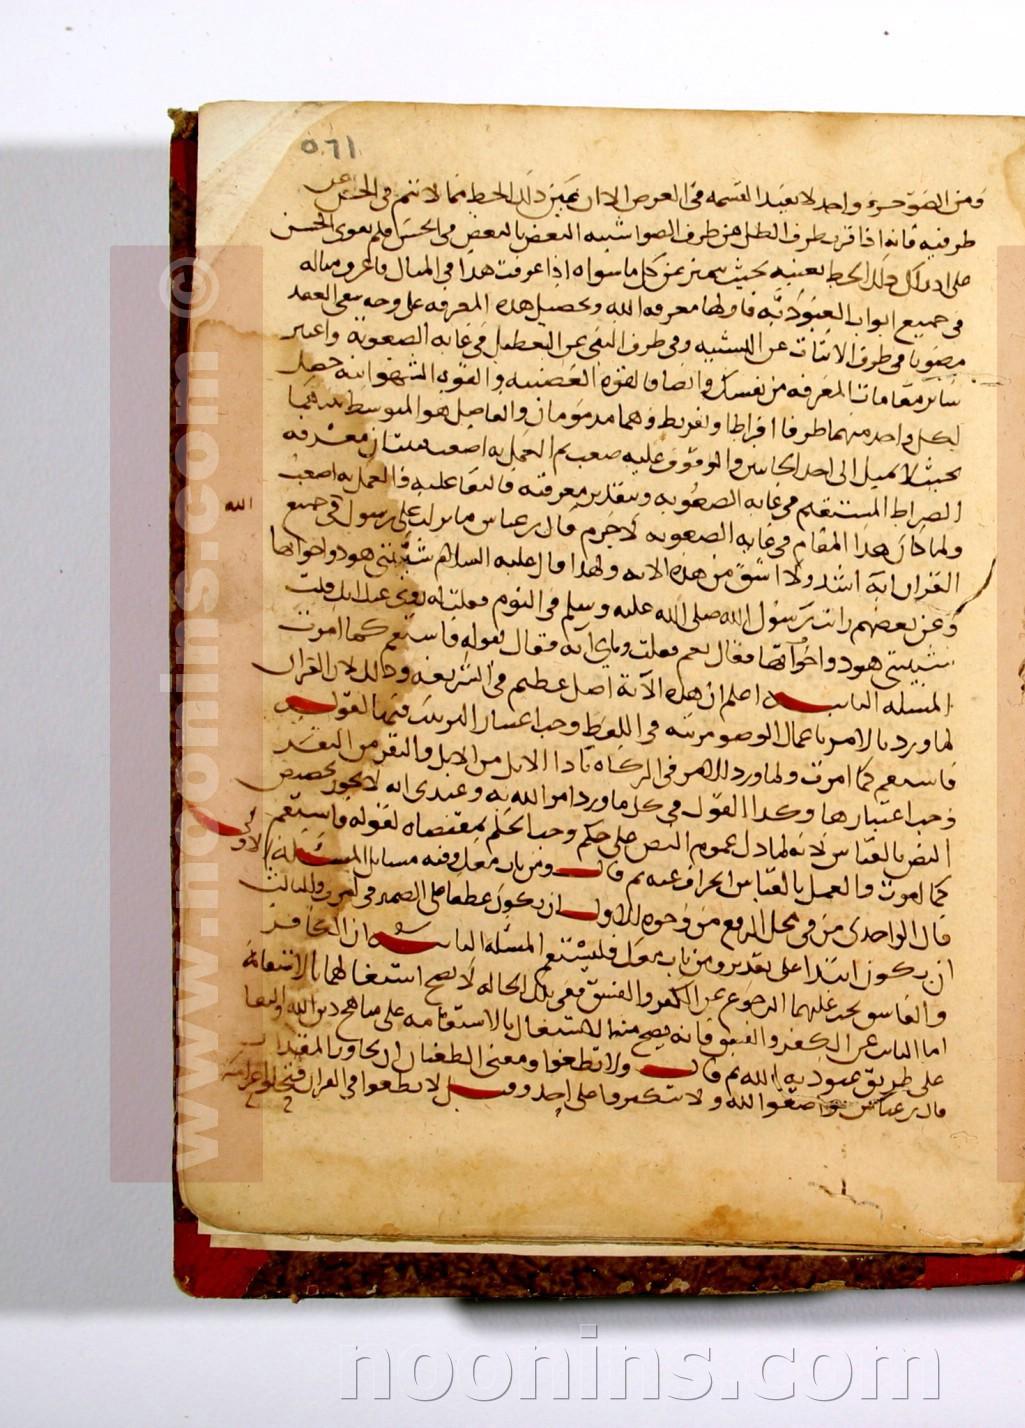 ٥٦١
ومن الضوء جزء واحد لا يقبل القسمة في العرض الا ان عين ذلك الخط مما لا تتميز في الحس عن
طرفيه فانه اذا قرب طرف الظل من طرف الضوء اشتبه البعض بالبعض في الحس فلم يقوى الحس
على ادراك ذلك الخط بعينه بحيث يتميز عن كل ما سواه اذا عرفت هذا في المثال فاعرف مثاله
في جميع ابواب العبودية فاولها معرفة الله وتحصيل هذه المعرفة على وجه يبقى العبد
مصونا في طرف الاثبات عن التشبيه وفي طرف النفي عن التعطيل في غاية الصعوبة واعتبر
سائر مقامات المعرفة من نفسك وايضا فالقوة الغضبية والقوة الشهوانية حصل
لكل واحد منهما طرفا افراط وتفريط وهما مذمومان والفاصل هو المتوسط بينهما
بحيث لا يميل الى احد الجانبين والوقوف عليه صعب ثم العمل به اصعب فثبت ان معرفة
الصراط المستقيم في غاية الصعوبة وبتقدير معرفته فالبقا عليه والعمل به اصعب
ولما كان هذا المقام في غاية الصعوبة لا جرم قال بن عباس ما نزلت على رسول الله في جميع
القران اية اشد ولا اشق من هذه الاية ولهذا قال عليه السلام شيبتني هود واخواتها
وعن بعضهم رايت رسول الله صلى الله عليه وسلم في النوم فقلت له روي عنك انك قلت
شيبتني هود واخواتها فقال نعم فقلت وباي اية فقال بقوله فاستقم كما امرت
المسلة الثانية اعلم ان هذه الآية اصل عظيم في الشريعة وذلك لان القران
لما ورد بالامر باعمال الوضو مرتبة في اللفظ وجب اعتبار الترتيب فيها لقوله
فاستقم كما امرت ولما ورد الامر في الزكاة بادا الابل من الابل والبقر من البقر
وجب اعتبارها وكذا القول في كل ما ورد امر الله به وعندي انه لا يجوز تخصيص
النص بالقياس لانه لما دل عموم النص على حكم وجب الحكم بمقتضاه لقوله فاستقم
كما امرت والعمل بالقياس انحراف عنه ثم قال ومن تاب معك وفيه مسائل المسئلة الاولى
قال الواحدي من في محل الرفع من وجوه الاول ان يكون عطفا على الضمير في امرت والثالث
ان يكون ابتدا على تقدير ومن تاب معك فليستقم المسئلة الثانية ان الكافر
والفاسق يجب عليهما الرجوع عن الكفر والفسق ففي تلك الحالة لا يصح اشتغالهما بالاستقامة
اما التائب عن الكفر والفسق فانه يصح منه الاشتغال بالاستقامة على مناهج دين الله والبقا
على طريق عبودية الله ثم قال ولا تطغوا ومعنى الطغيان ان يجاوز المقدار
قال بن عباس تواضعوا لله ولا تتكبروا على احد وقيل لا تطغوا في القران
noonins.com
www.noonins.com ©